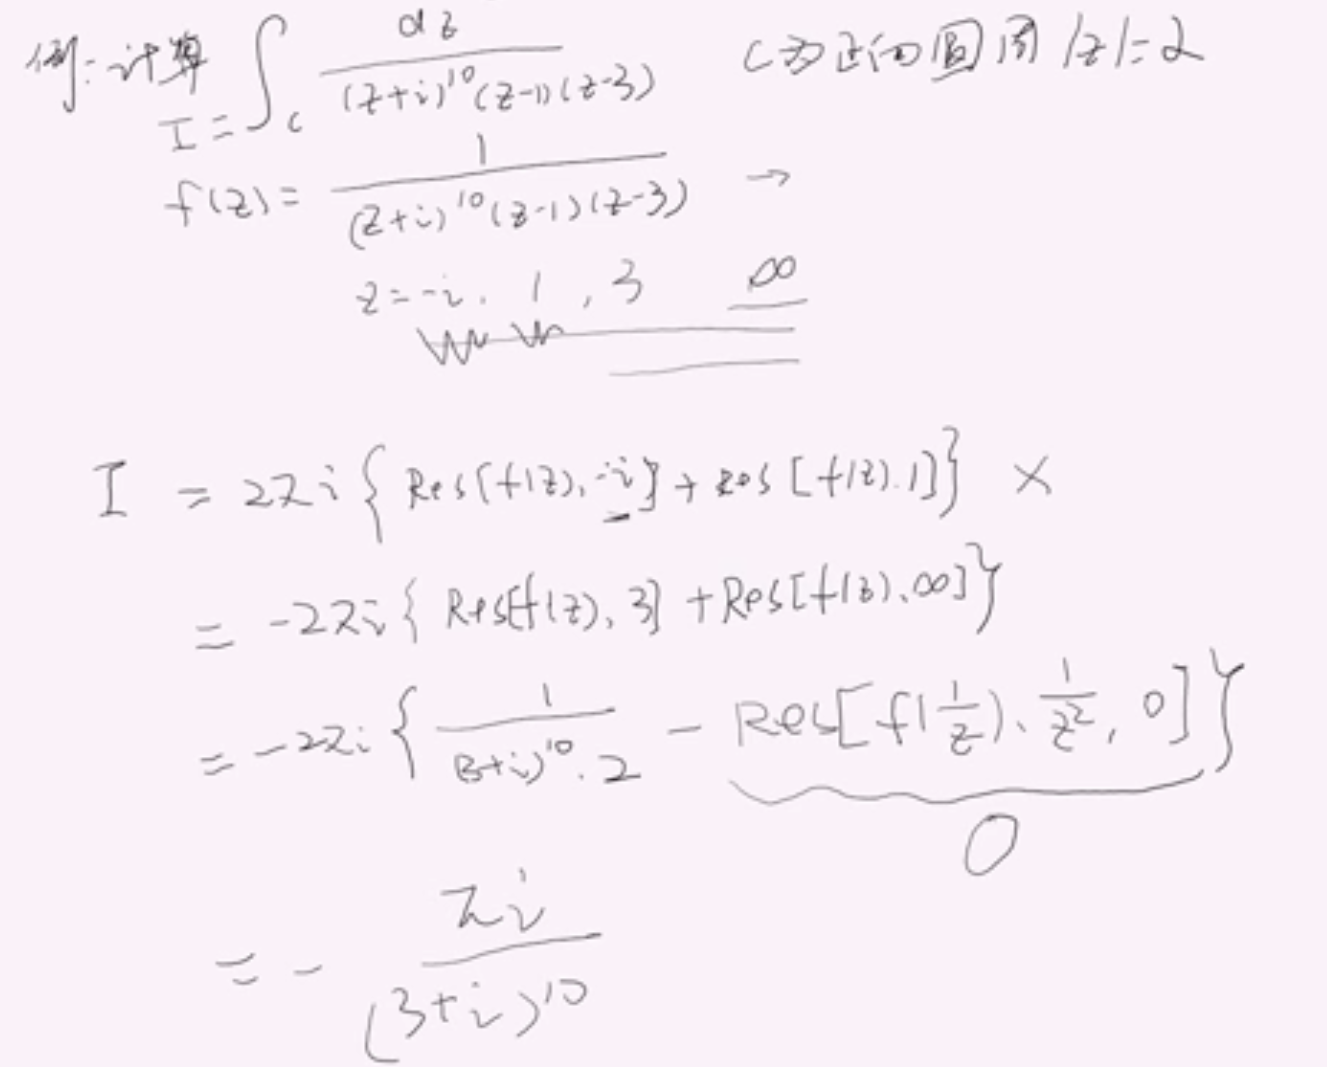 例:计算 I = ∫_C dz / ((z+i)^10 (z-1)(z-3))   C为正向圆周 |z|=2
f(z) = 1 / ((z+i)^10 (z-1)(z-3)) →
z=-i, 1, 3   ∞
I = 2πi { Res[f(z), -i] + Res[f(z), 1] } ×
= -2πi { Res[f(z), 3] + Res[f(z), ∞] }
= -2πi { 1 / ((3+i)^10 · 2) - Res[f(1/z) · 1/z^2, 0] }
0
= - πi / (3+i)^10